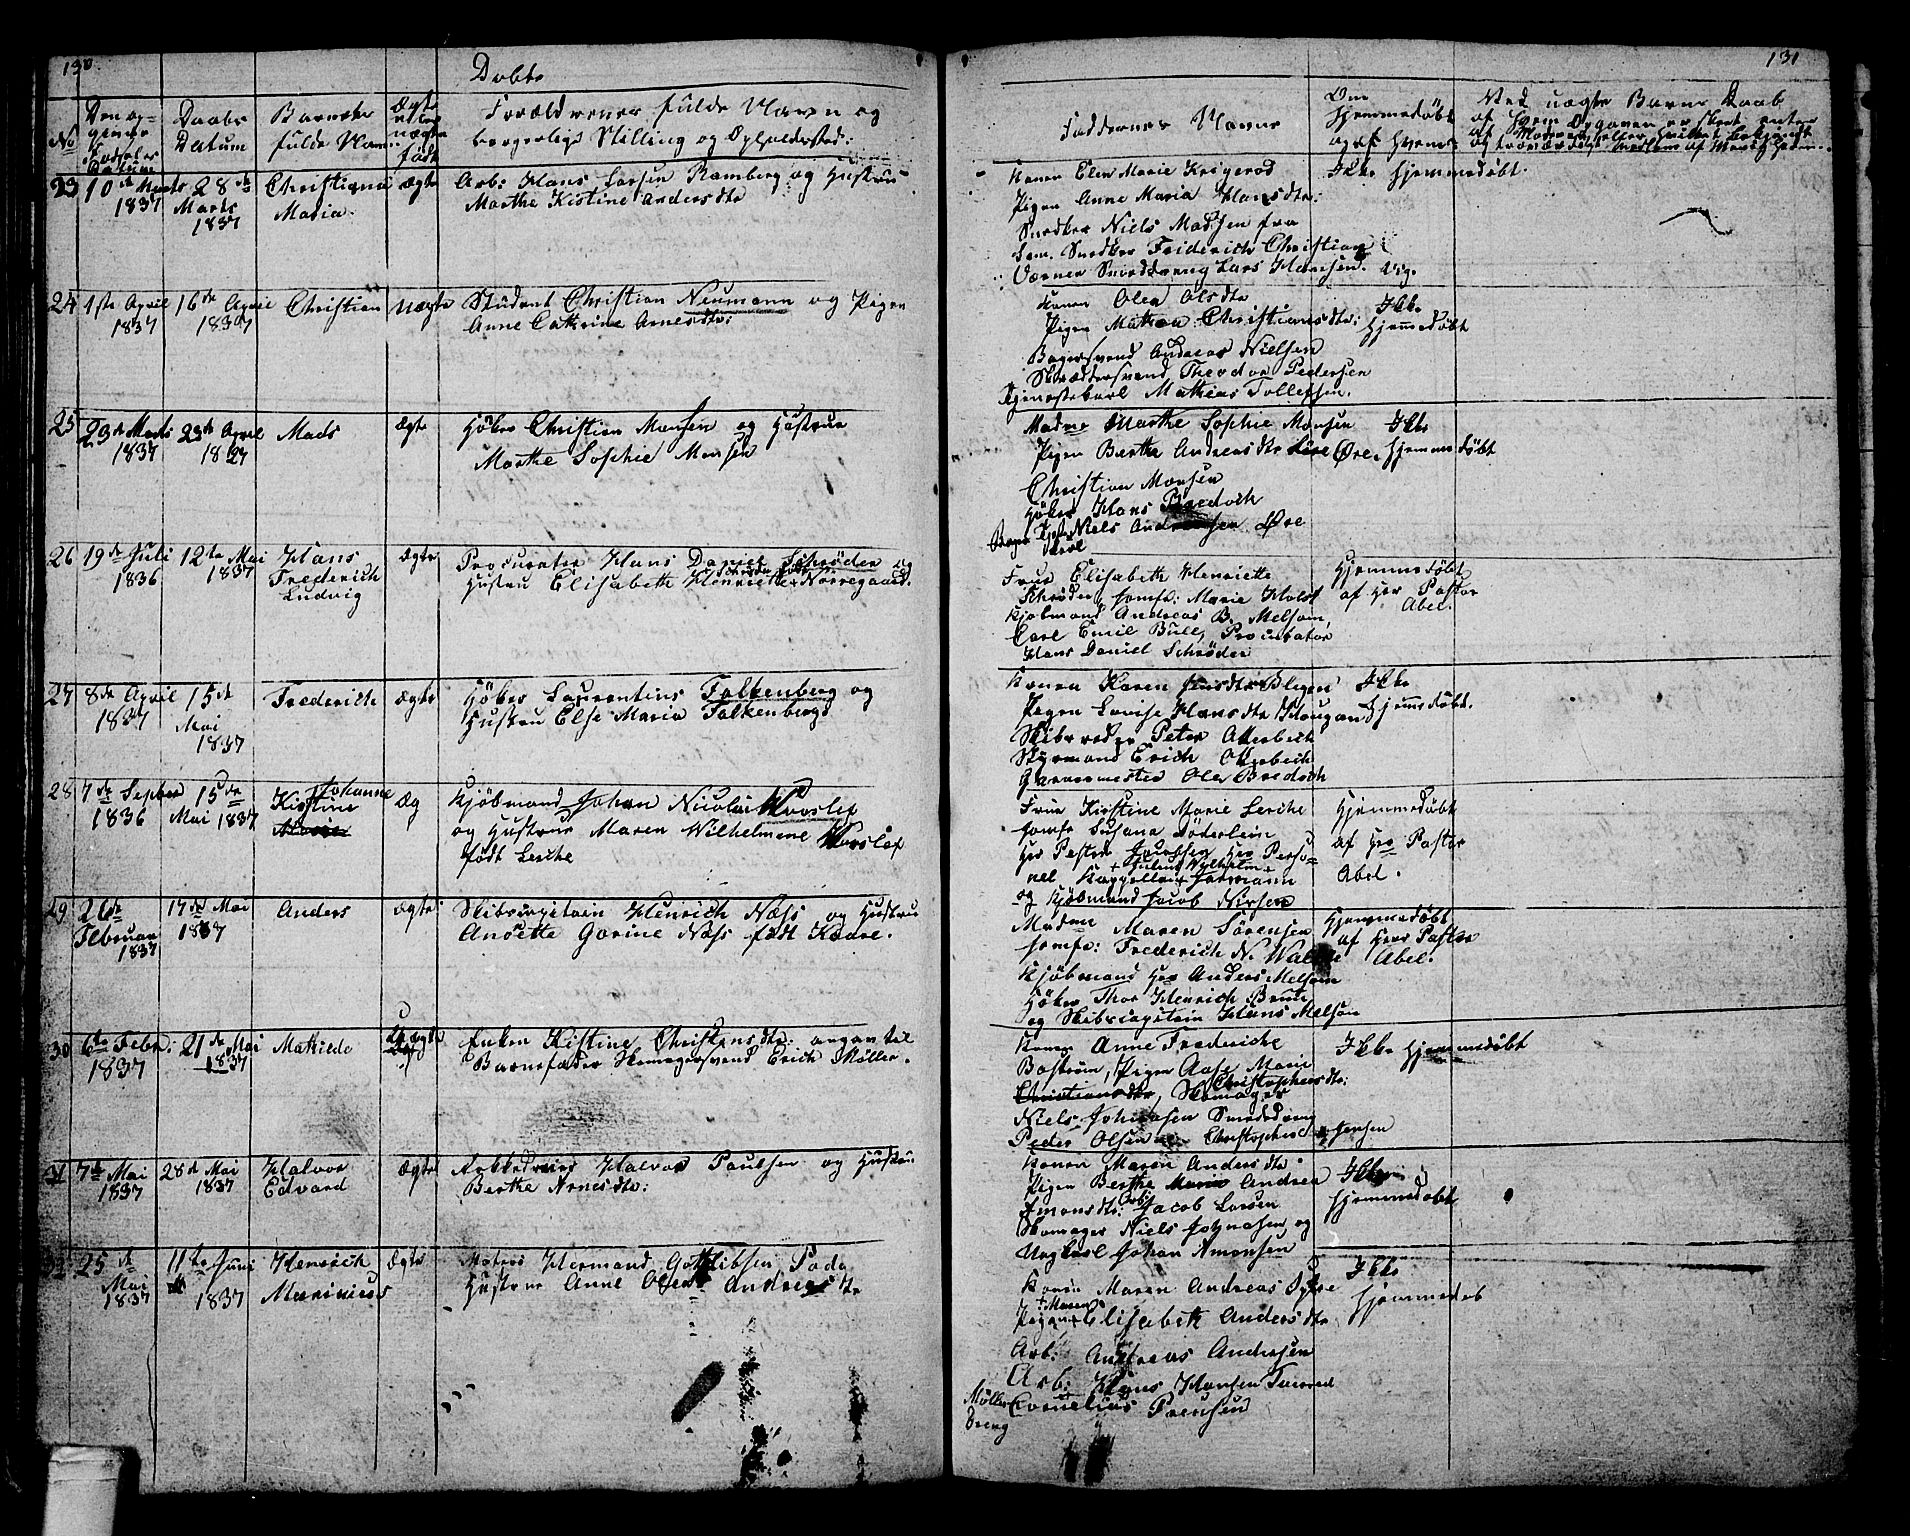 130
Døbte
No
Den op-
givne
Fødsels
Datum
Daabs
Datum
Barnets
fulde Navn
Ægte
eller
uægte
født
Forældrenes fulde Navn og
borgerlige Stilling og Opholdsted:
23
10de Marts
1837
28de
Marts
1837
Christiane
Maria
ægte
Arb: Hans Larsen Ramberg og Hustru
Marthe Kistine Andersdtr
24
1ste April
1837
16de April
1837
Christian
Uægte
Student Christian Neumann og Pigen
Anne Cathrine Arnesdtr:
25
23de Marts
1837
23de April
1837
Mads
Ægte
Høker Christian Monsen og Hustrue
Marthe Sophie Monsen
26
19de Juli
1836
12te Mai
1837
Hans
Frederich
Ludvig
Ægte
Procurator Hans Daniel Schrøder og
Hustru Elisabeth Henriette Nørregaard.
27
8de April
1837
15de
Mai
1837
Frederich
Ægte
Høker Laurentius Falkenberg og
Hustru Else Maria Falkenberg
28
7de Septber
1836
15de
Mai 1837
Johanne
Kistine
Marie
Æg
Kjøbmand Johan Nicolai Worslef
og Hustrue Maren Wilhelmine Worslef
født Lerche
29
26de
Februar
1837
17de Mai
1837
Anders
Ægte
Skibscapitain Henrich Næss og Hustru
Anette Gorine Næss født Kaare.
30
6te Febr:
1837
21de Mai
1837
Mathilde
Uægte
Enken Kistine Christensdtr: angan til
Barnefader Skomagersvend Erich Møller.
31
7de Mai
1837
28de Mai
1837
Halvor
Edvard
Ægte
Halvor Paulsen og Hustru
Berthe Arnesdtr:
32
25de
Mai
1837
11te Juni
1837
Henrich
Marinius
Ægte
Matros Hermand Gottlibsen Pade
Hustrue Anne Olea Andreasdtr
131
Faddernes Navne
Om
Hjemmedøbt
og af hvem
Ved uægte Barns Daab
af hvem Opgaven er skeet enten
af Moderen eller hvilket bekjendt
og troværdigt Medlem af Menigheden
Konen Elen Marie Krigerød
Pigen Anne Maria Hansdtr:
Snedker Niels Madsen fra
Sem. Snedker Friderich Christian
Værner Smeddreng Lars Hansen.
Ikke hjemmedøbt.
Konen Olea Olsdtr
Pigen Mathea Christiansdtr:
Bagersvend Andreas Nielsen
Skræddersvend Theodor Pedersen
Tjenestekarl Mathias Tollefsen.
Ikke
Hjemmedøbt
Madme Marthe Sophie Monsen
Pigen Berthe Andreasdtr Øre
Christian Monsen
Høker Hans Bredoch
Niels Andreasen Øre
Ikke
Hjemmedøbt
Frue Elisabeth Henriette
Schrøder Jomfr: Marie Holst
Kjøbmand Andreas B. Melsom,
Carl Emil Bull, Procurator
Hans Daniel Schrøder
Hjemmedøbt
af Her Pastor
Abel.
Konen Karen Jensdtr Blegen
Pigen Lovise Hansdtr Haugan
Skibsreder Peter Otterbech
Styrmand Erich Otterbech
Garvermester Ole Bredoch
Ikke
Hjemmedøbt.
Frue Kirstine Marie Lerche
Jomfr Susana Søderlein
Her Pastor Jourssen Her Perso-
nel Kappellan + Julius Wilhelm +
Jarmann
og Kjøbmand Jacob Nirsen
Hjemmedøbt
af Her Pastor
Abel.
Madme Maren Sørensen
Jomfr: Frederich N. Walle
Kjøbmand Her Anders Melsom
Høker Thor Henrich Bruun
og Skibscapitain Hans Melsom
Hjemmedøbt
af Herr Pastor
Abel.
Konen Anne Frederiche
Bostrøm, Pigen Aase Marie
Christiansdtr, Christophersdtr: Skomager
Niels Johnasen Smededreng
Peder Olsen Christopher Jensen
Ikke hjemmedøbt
Konen Maren Andersdtr
Pigen Berthe Marie Andrea
Amonsdtr: Arb: Jacob Larsen
Skomager Niels Johnasen og
Ungkarl Johan Amonsen
Ikke
Hjemmedøbt
Konen Maren Andreas Sytre
Pigen + Maren + Elisabeth Andersdtr
Arb: Andreas Andersen
Arb: Hans Hansen
Møller
Dreng
Cornelius Poensen
Ikke
Hjemmedøb